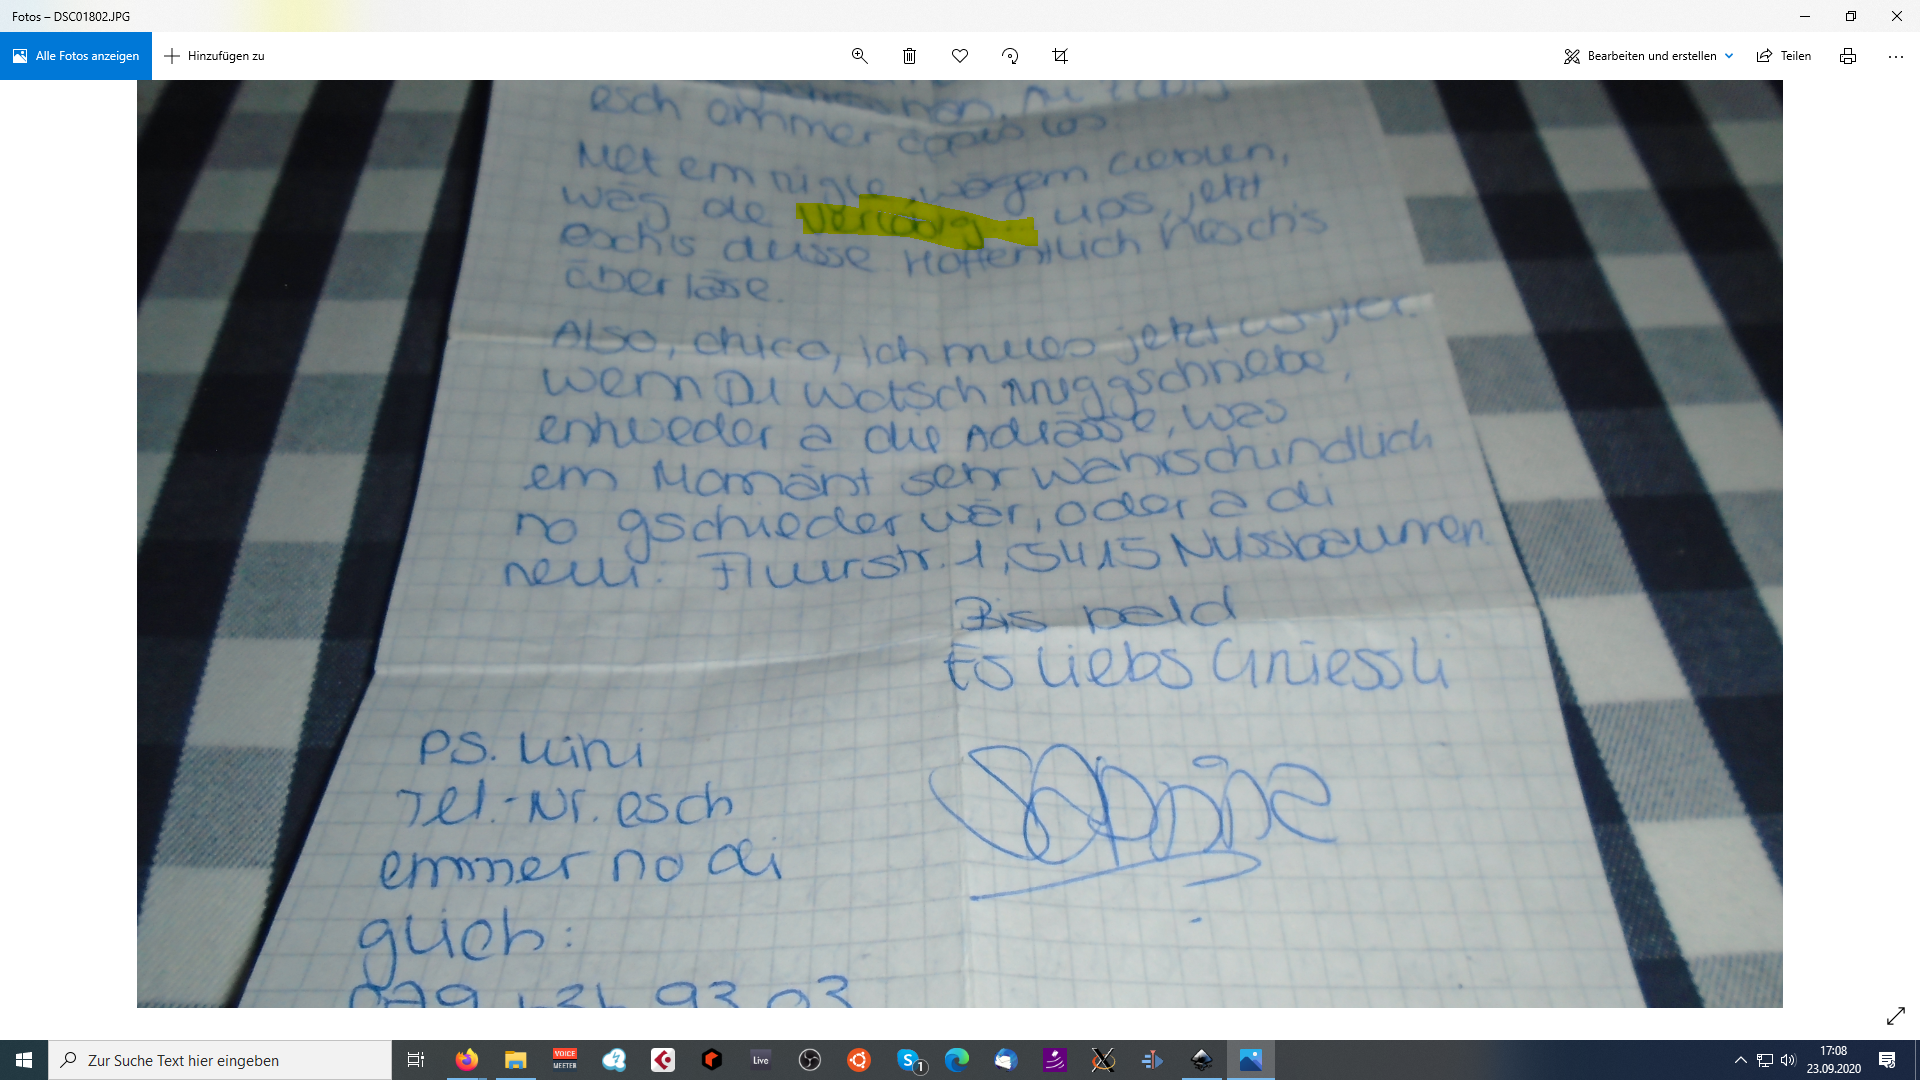 Fotos – DSC01802.JPG
Alle Fotos anzeigen
Hinzufügen zu
Bearbeiten und erstellen
Teilen
esch emmer öppis los.
Met em wägem
wäg de ups, jetzt
esch's dusse Hoffentlich hesch's
überläse.
Also, chico, ich muess jetzt wyter.
Wenn Du wotsch zruggschriebe,
entweder a die Adrässe, was
em Momänt sehr wahrschindlich
no gschieder wär, oder a di
neui: Flurstr. 1, 5415 Nussbaumen.
Bis bald
Es liebs Griessli
PS. Mini
Tel.-Nr. esch
emmer no di
glich:
Sabine
VOICE
MEETER
Live
1
Zur Suche Text hier eingeben
17:08
23.09.2020